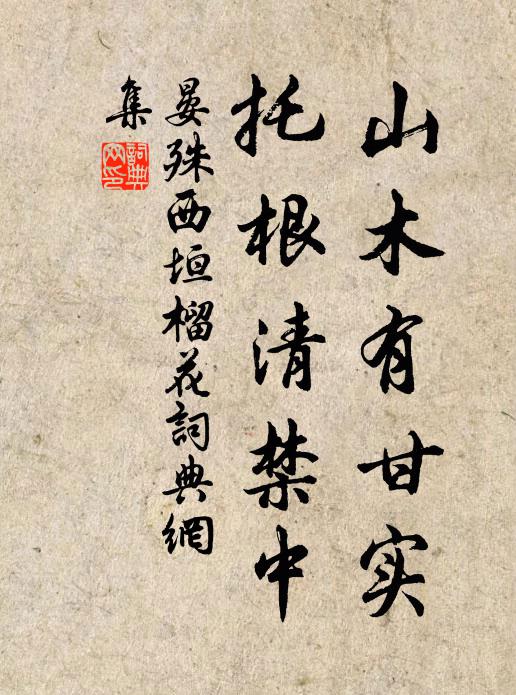 山木有甘实
托根清禁中
晏殊西垣榴花詞典網
集
詞典網印